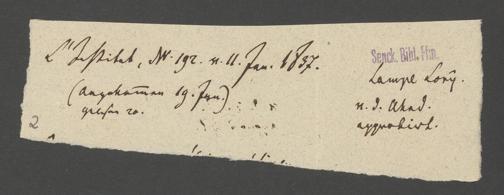 L'Institut, № 192. v. 11. Jan. 1837.
(angekommen 19. Jan.)
gelesen 20.
Senck. Bibl. Ffm.
Lampe
v. d. Akad.
approbirt.
2